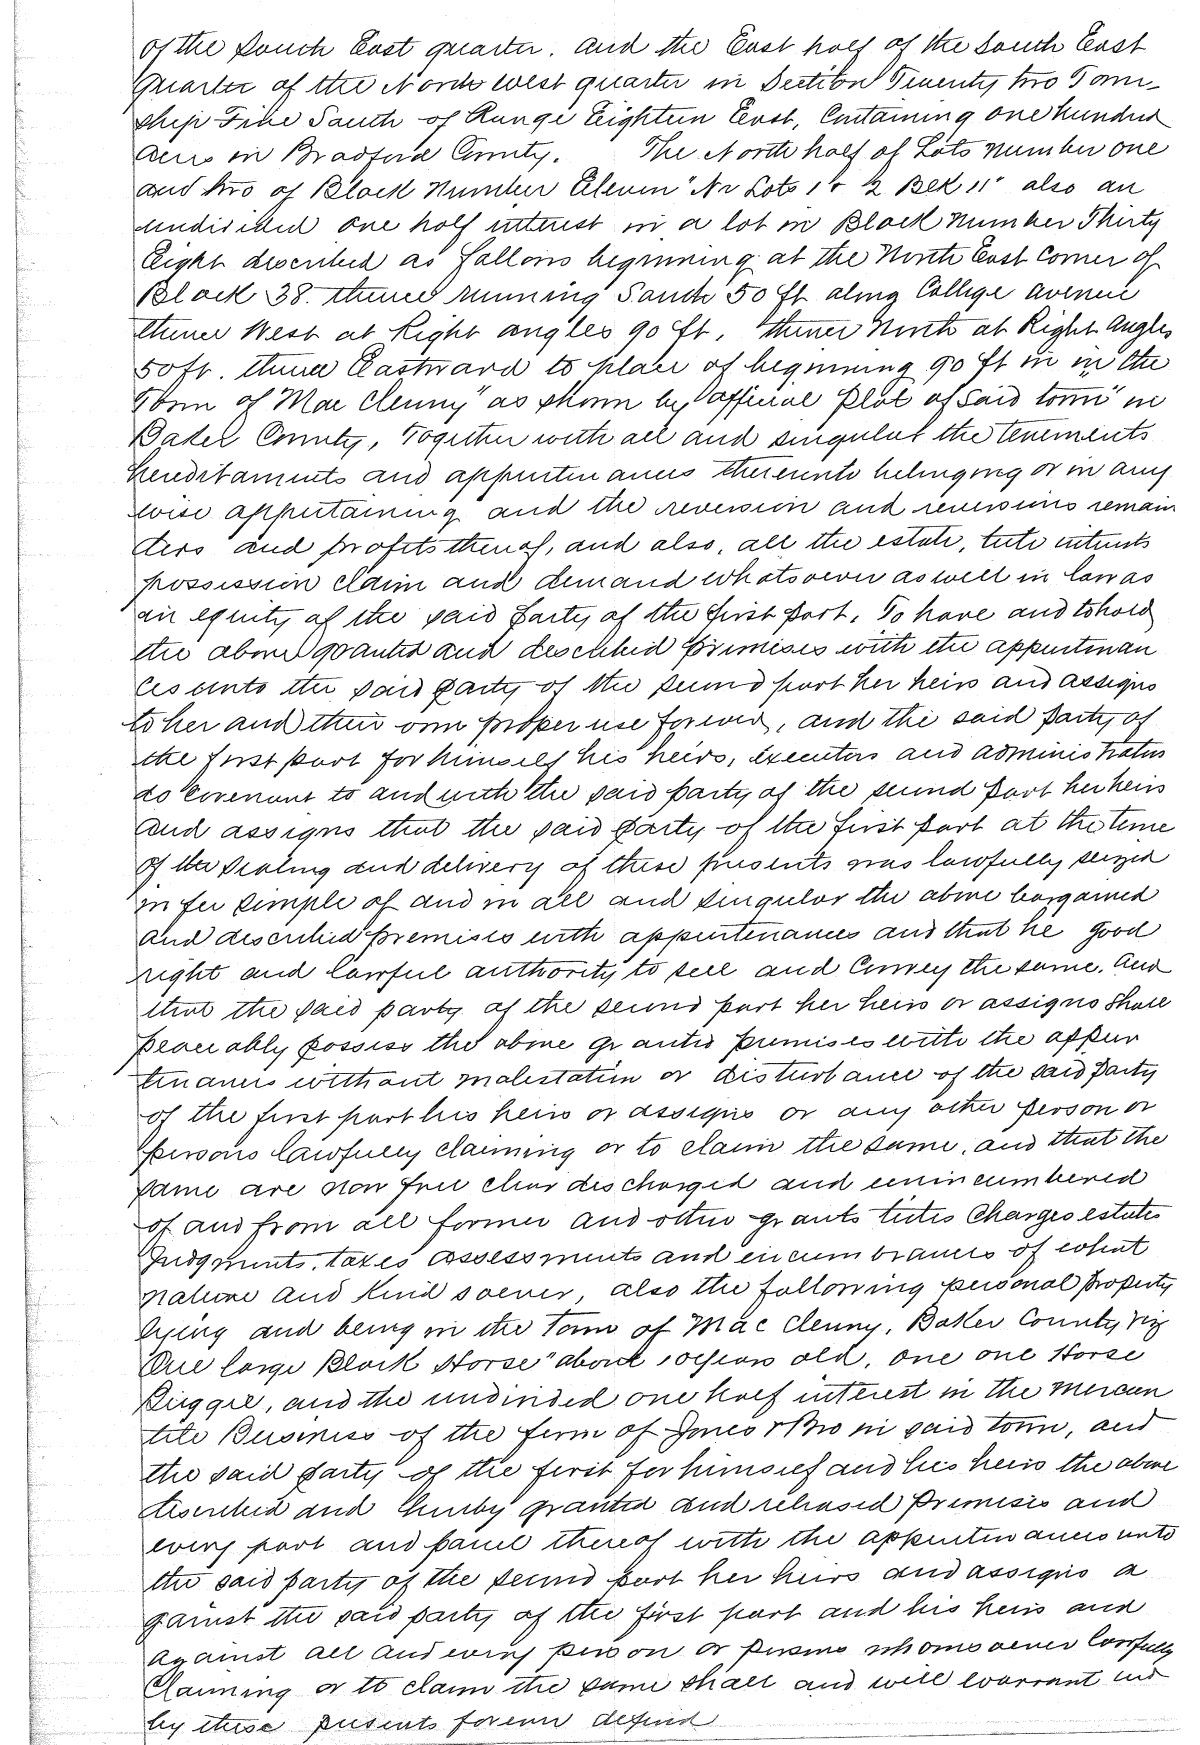 of the South East quarter. and the East half of the South East
quarter of the North west quarter in Section Twenty two Town-
ship Five South of Range Eighteen East, Containing one hundred
acres in Bradford County. The North half of Lots number one
and two of Block number Eleven "N½ Lots 1 & 2 Bck 11" also an
undivided one half interest in a lot in Block number Thirty
Eight described as follows beginning at the North East corner of
Block 38. thence running South 50 ft along College avenue
thence West at Right angles 90 ft. thence North at Right angles
50 ft. thence Eastward to place of beginning 90 ft in in the
Town of Mac Clenny "as shown by official plat of said town" in
Baker County, Together with all and singular the tenements
hereditaments and appurtenances thereunto belonging or in any
wise appertaining and the reversion and reversions remain
ders and profits thereof, and also, all the estate, title interests
possession claim and demand whatsoever as well in law as
in equity of the said party of the first part. To have and to hold
the above granted and described premises with the appurtenan
ces unto the said party of the second part her heirs and assigns
to her and their own proper use forever, and the said party of
the first part for himself his heirs, executors and administrators
do covenant to and with the said party of the second part her heirs
and assigns that the said party of the first part at the time
of the sealing and delivery of these presents was lawfully seized
in fee simple of and in all and singular the above bargained
and described premises with appurtenances and that he good
right and lawful authority to sell and convey the same. And
that the said party of the second part her heirs or assigns shall
peaceably possess the above granted premises with the appur
tenances without molestation or disturbance of the said party
of the first part his heirs or assigns or any other person or
persons lawfully claiming or to claim the same, and that the
same are now free clear discharged and unincumbered
of and from all former and other grants titles charges estates
Judgments, taxes assessments and encumbrances of what
nature and kind soever, also the following personal property
lying and being in the Town of Mac Clenny, Baker County viz
One large Black Horse "about 10 years old, one one Horse
Buggie, and the undivided one half interest in the mercan
tile Business of the firm of Jones & Bro in said town, and
the said party of the first for himself and his heirs the above
described and hereby granted and released premises and
every part and parcel thereof with the appurtenances unto
the said party of the second part her heirs and assigns a
gainst the said party of the first part and his heirs and
against all and every person or persons whomsoever lawfully
claiming or to claim the same shall and will warrant and
by these presents forever defend